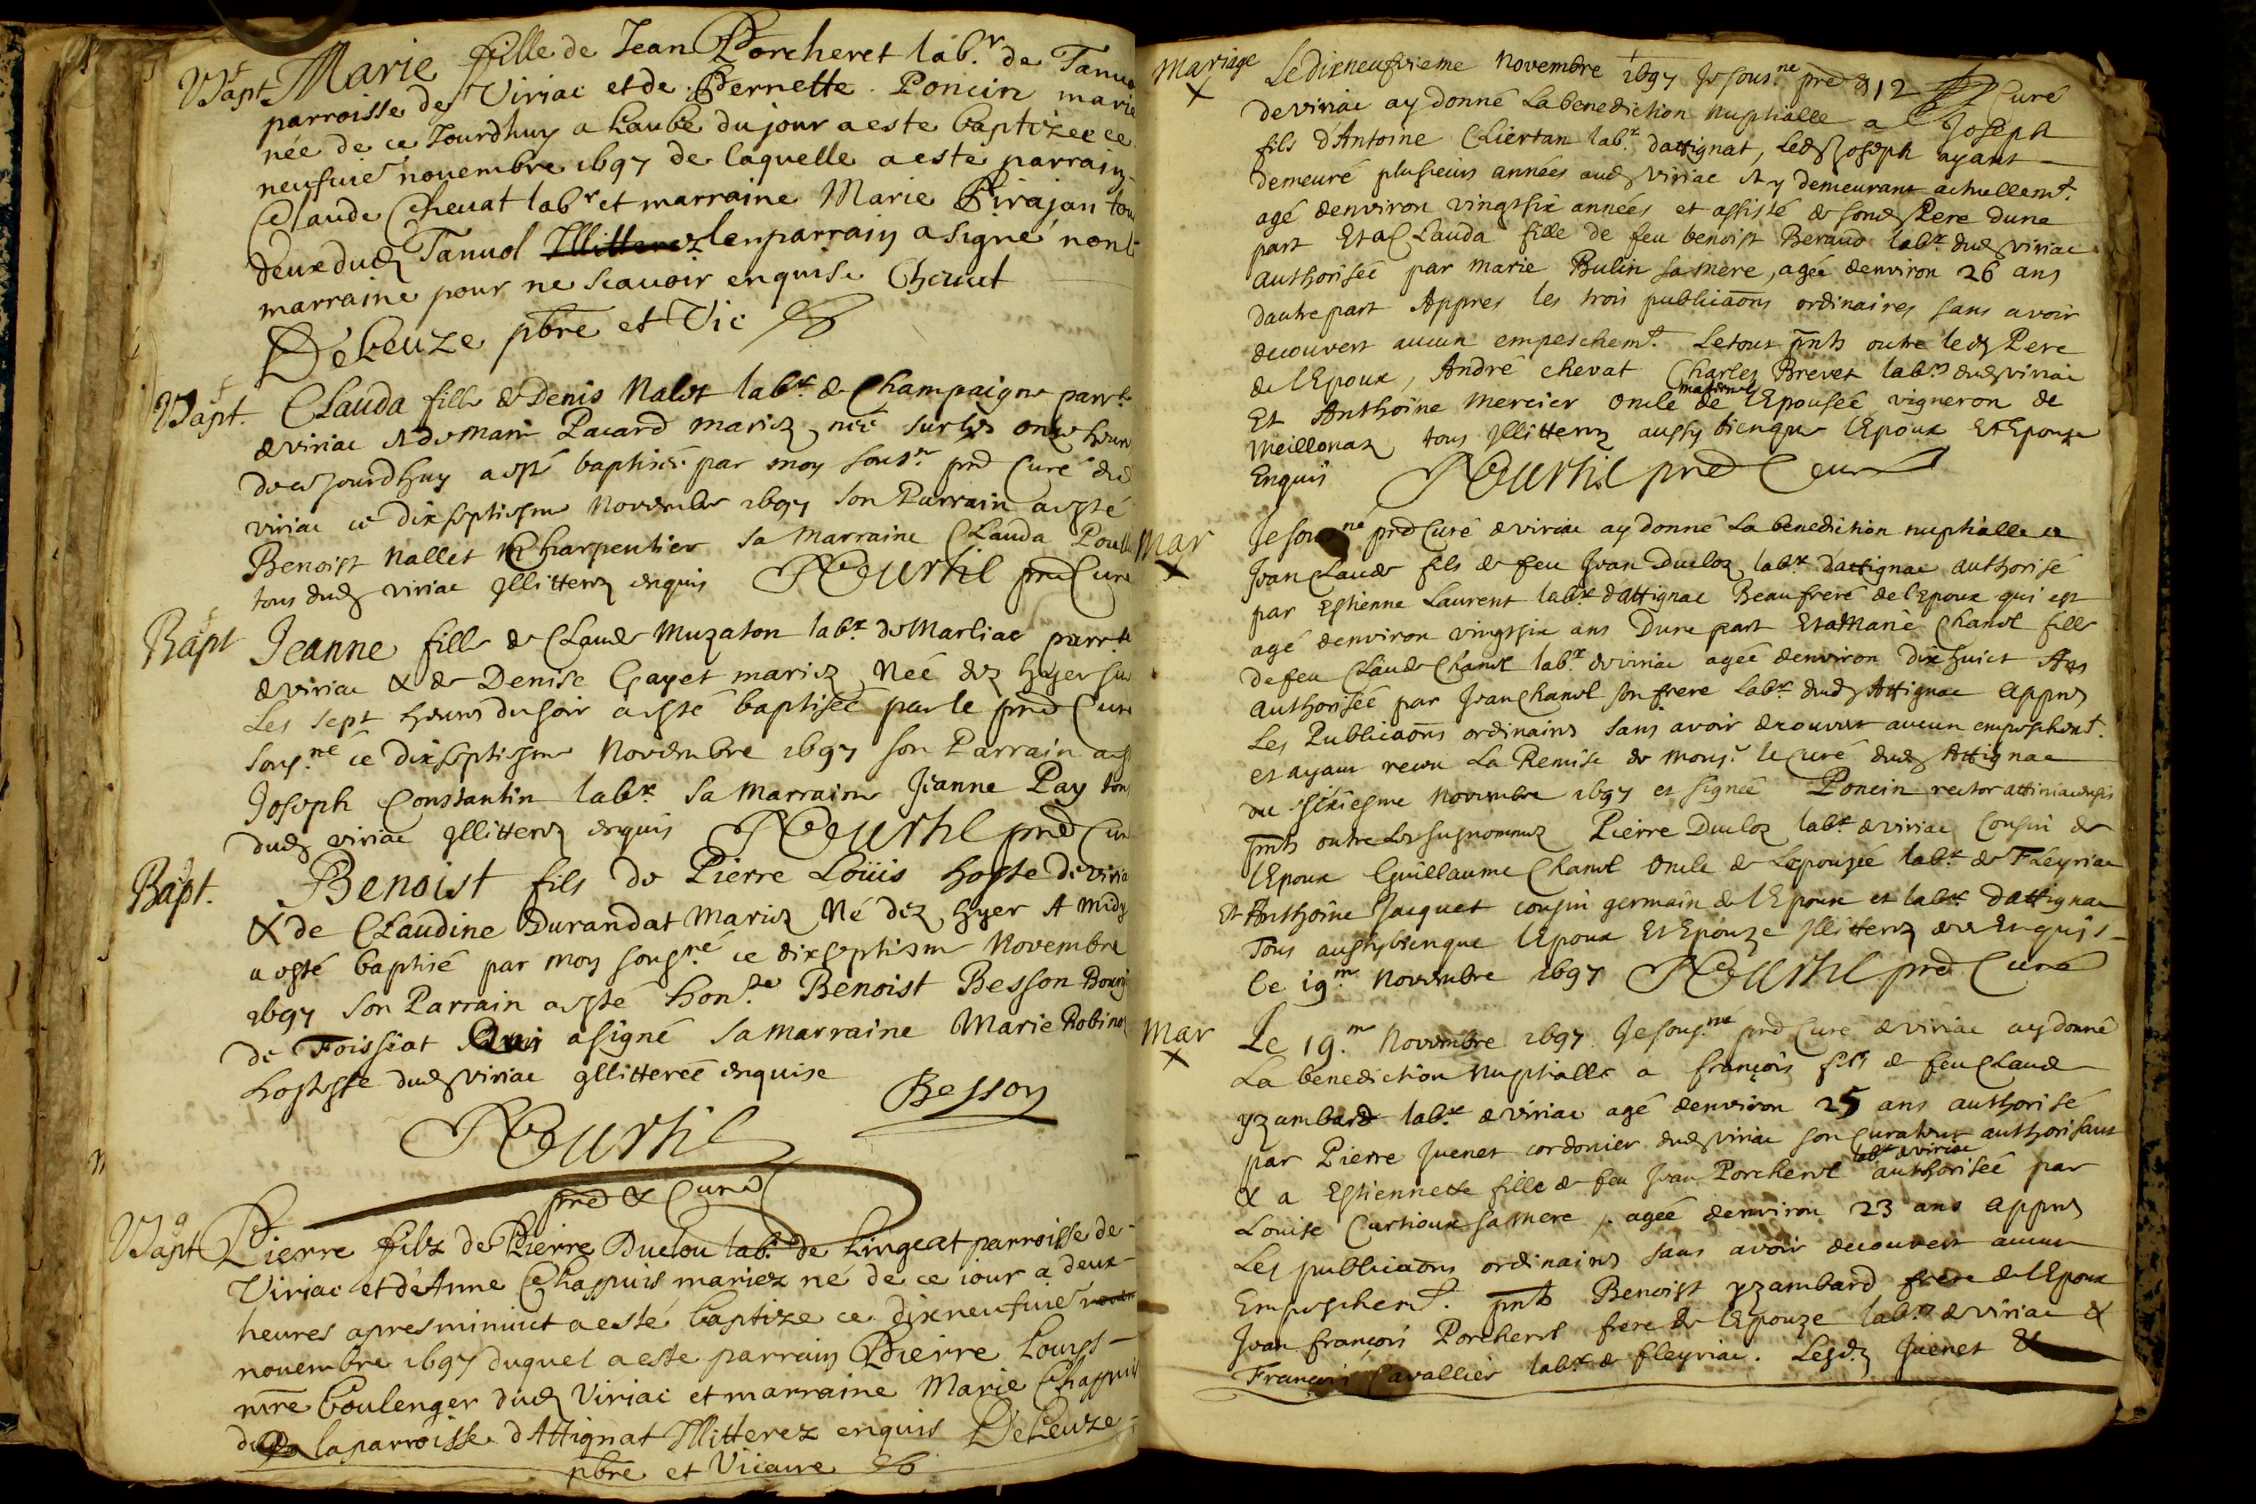 Bapt. Marie fille de Jean Porcheret lab.r de Tanuo
parroisse de Viriac et de Pernette Poncin marie
née de ce Jourdhuy a Laube du jour a este baptizee ce
neufuie novembre 1697 de laquelle a este parrain
Claude Chevat lab.r et marraine Marie Pirajan tou
deux dud Tanuol lenparrain a signé non l
marraine pour ne scavoir enquise Chevat
DeLeuze pbre et Vic
Bapt. Clauda fille de Denis Nalet lab.r de Champaigne parr.e
de viriac et de Marie Pacard mariez née sur les onze heures
de ce jourdhuy a esté baptisée par moy sous.né pre Curé de
viriac ce dixseptiesme Novembre 1697 Son Parrain a esté
Benoist Nallet Charpentier sa Marraine Clauda Poull
tous dud viriac illitterez enquis NCourtil pre Curé
Bapt Jeanne fille de Claude Muzaton lab.r de Marliac parr.e
de viriac & de Denise Gayet mariez Née dez hyer sur
Les sept heures du soir a esté baptisée par le pre Curé
sous.né ce dixseptiesme Novembre 1697 son Parrain a es
Joseph Constantin lab.r sa Marraine Jeanne Pay tous
dud viriac illitterez enquis NCourtil pre Cur
Bapt. Benoist fils de Pierre Loüis hoste de viria
& de Claudine Durandat Mariez Né dez hyer A midy
a esté baptisé par moy sous.né ce dixseptiesme Novembre
1697 son Parrain a esté hon.te Benoist Besson Bourg
de Foissiat Qui a signé sa marraine Marie Robinet
hostesse dud viriac illitterée enquise
Besson
NCourtil
pre & Curé
Bapt Pierre filz de Pierre Duclou lab.r de Lingeat parroisse de
Viriac et de Anne Chappuis mariez né de ce iour a deux
heures apres minuict a esté baptize ce dixneufuie
novembre 1697 duquel a este parrain Pierre Louys
mre boulenger dud Viriac et marraine Marie Chappuis
de la parroisse dAttignat Illitterez enquis DeLeuze
pbre et Vicaire
Mariage Le dixneufvieme Novembre 1697 Je sous.né pre & 12 Curé
de viriac ay donné La benediction Nuptialle a Joseph
fils d'Antoine Chiertan lab.r dattignat, Led Joseph ayant
demeuré plusieurs années aud viriac et y demeurant actuellem.t
agé denviron vingtsix années et assisté de son Pere Dune
part Et a Clauda fille de feu benoist Beraud lab.r dud viriac
authorisée par marie Bulin sa mere, agée denviron 26 ans
dautre part Appres les trois publications ordinaires sans avoir
decouvert aucun empeschem.t Le tout pnts outre led Pere
de lEpoux, André chevat Charles Brevet lab.rs dud viriac
Et Anthoine Mercier Oncle maternel de lEpousée vigneron de
Meillonaz tous illitterez aussy bienque lEpoux Et Epouze
Enquis NCourtil pre Curé
Mar Je sous.né pre Curé de viriac ay donné La benediction nuptialle a
Jean Claude fils de feu Jean Ducloz lab.r dattignac authorisé
par Estienne Laurent lab.r dAttignac Beaufrere de lEpoux qui est
agé denviron vingtsix ans Dune part Et a Marie Chanel fille
de feu Claude Chanel lab.r de viriac agée denviron dixhuict Ans
authorisée par Jean Chanel son frere Lab.r dud Attignac appres
Les Publications ordinaires sans avoir decouvert aucun empeschem.t
et ayant receu La Remise de Mons.r le Curé dud Attignac
du seiziesme Novembre 1697 et signée Poncin rector attiniacensis
pnts outre les susnommez Pierre Ducloz lab.r de viriac Cousin de
lEpoux Guillaume Chanel Oncle de Lepouzée lab.r de Fleyriac
Et Anthoine Jacquet cousin germain de lEpoux et lab.r dattignac
Tous aussybienque lEpoux Et Epouze illitterez Enquis
Ce 19.me Novembre 1697 NCourtil pre Curé
Mar Le 19.me Novembre 1697 Je sous.né pre Curé de viriac ay donné
La benediction Nuptialle a françois fils de feu Claude
yzambard lab.r de viriac agé denviron 25 ans authorisé
par Pierre Juenet cordonier dud viriac son Curateur authorisant
& a Estiennette fille de feu Jean Porcheret lab.r de viriac authorisée par
Louise Curtioux sa Mere, agée denviron 23 ans appres
Les publications ordinaires sans avoir decouvert aucun
Empeschem.t pnts Benoist yzambard frere de lEpoux
Jean françois Porcheret frere de lEpouze lab.rs de viriac &
François Cavallier lab.r de fleyriac. Lesd Juenet &